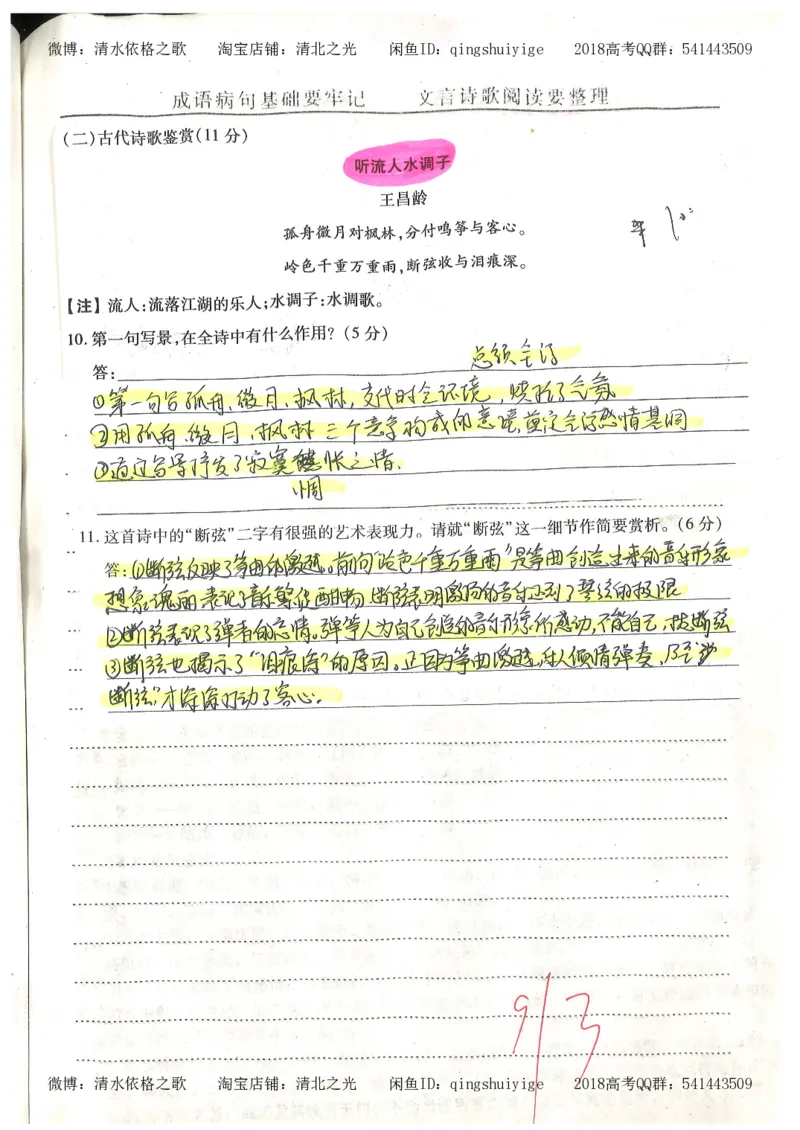 微博：清水依格之歌 淘宝店铺：清北之光 闲鱼ID：qingshuiyige 2018高考QQ群：541443509
成语病句基础要牢记 文言诗歌阅读要整理
(二)古代诗歌鉴赏(11分)
听流人水调子
王昌龄
孤舟微月对枫林,分付鸣筝与客心。
岭色千重万重雨,断弦收与泪痕深。
【注】流人:流落江湖的乐人;水调子:水调歌。
10.第一句写景,在全诗中有什么作用？(5分)
总领全诗
答:
①第一句写孤舟、微月、枫树,交代时令环境,烘托了气氛
②用孤舟、微月、枫树三个意象构成的意境,奠定全诗愁情基调
③通过写景抒发了寂寞惆怅之情.
惆
11.这首诗中的“断弦”二字有很强的艺术表现力。请就“断弦”这一细节作简要赏析。(6分)
答:①断弦反映了筝曲的激越。前句“岭色千重万重雨”是筝曲创造出来的音乐形象
断弦表明激扬的音乐达到了琴弦的极限
②断弦表现了弹者的忘情。弹筝人为自己创造的音乐形象所感动,不能自已,
断弦
③断弦也揭示了“泪痕深”的原因。正因为筝曲激越,乐人倾情弹奏,乃至“
断弦”才深深打动了客心。
9/3
微博：清水依格之歌 淘宝店铺：清北之光 闲鱼ID：qingshuiyige 2018高考QQ群：541443509